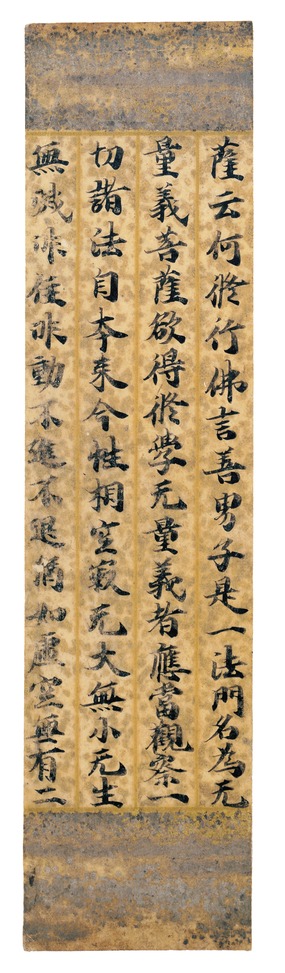 薩云何脩行佛言善男子是一法門名為无
量義菩薩欲得脩學无量義者應當觀察一
切諸法自本来今性相空寂无大無小无生
無滅非住非動不進不退猶如虚空無有二